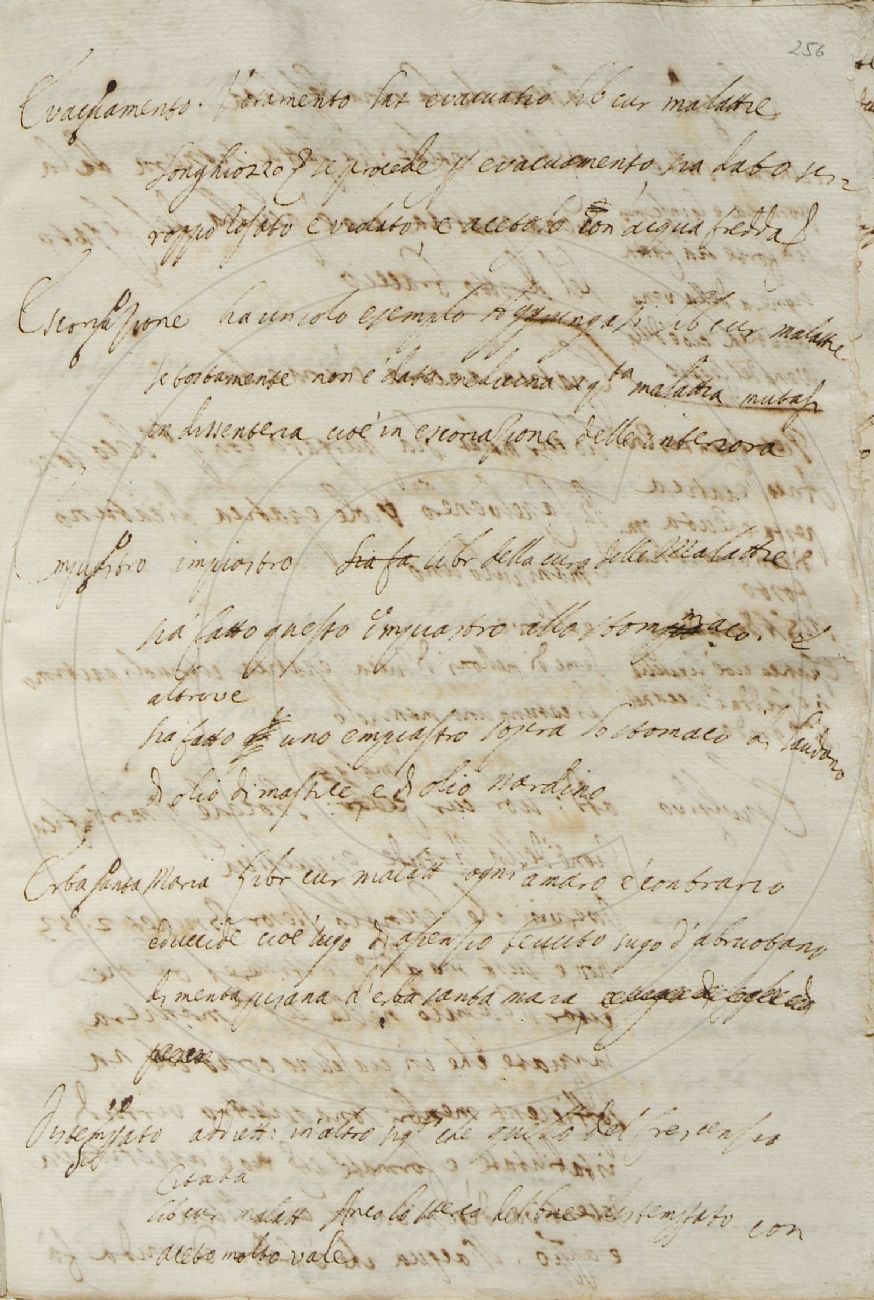 256
Evacuamento. Votamento lat evacuatio lib cur malattie
Singhiozzo che procede p evacuamento, sia dato sci=
roppo rosato e violato, e acetoso con acqua fredda
Escoriazione ha un solo esempio Aggiungasi lib cur malattie
se tostamente non è data medicina a qsta malattia mutasi
in dissenteria cioè in escoriazione delle interiora
Empiastro impiastro libr della cura delle Malattie
sia fatto questo impiastro allo stomaco. E
altrove
sia fatto uno empiastro sopra lo stomaco di laudano
di olio di mastice e di olio nardino
Erba santa Maria Libr cur malatt ogni amaro è contrario
e uccide cioè sugo di assenzio sugo d'abruotano
di menta pisana d'erba santa maria
Distemperato addiett: in altro sigto che quello del
Citata
lib cur malatt Anco lo sterco del bue distemperato con
aceto molto vale